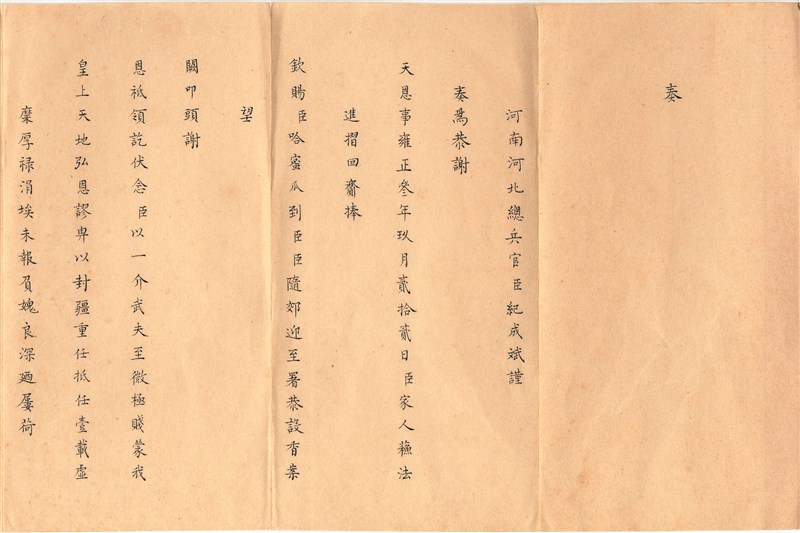 奏
河南河北總兵官臣紀成斌謹
奏爲恭謝
天恩事雍正叁年玖月貳拾貳日臣家人蘓法
進摺回齎捧
欽賜臣哈蜜瓜到臣臣隨郊迎至署恭設香案
望
闕叩頭謝
恩祗領訖伏念臣以一介武夫至微極賤蒙我
皇上天地弘恩謬畀以封疆重任抵任壹載虛
糜厚祿涓埃未報負媿良深廼屢荷